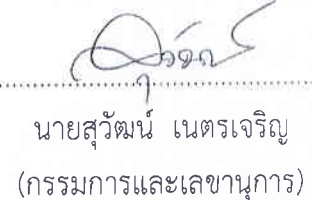 นายสุวัฒน์ เนตรเจริญ
(กรรมการและเลขานุการ)